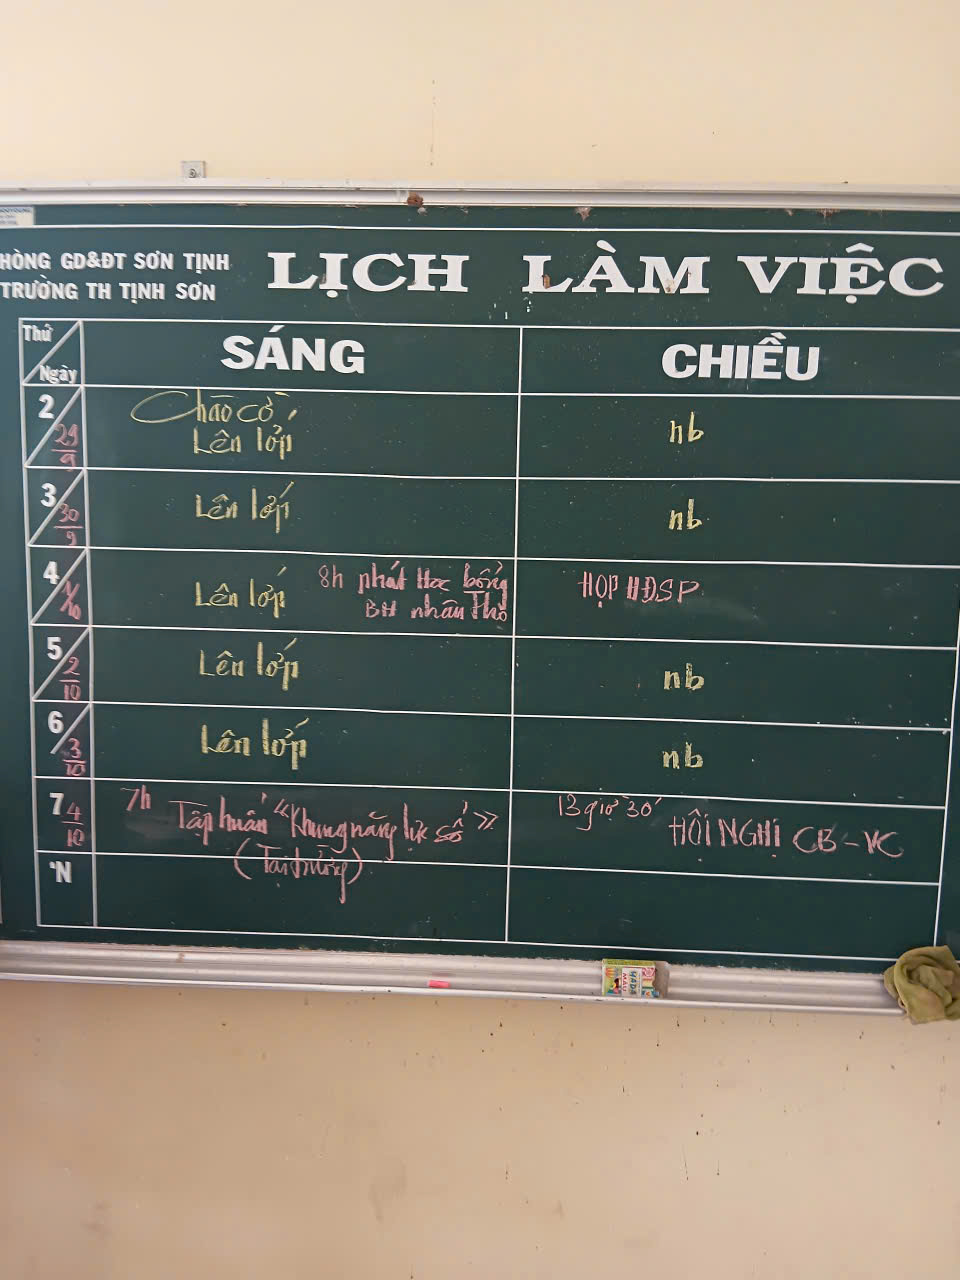 HÒNG GD&ĐT SƠN TỊNH
TRƯỜNG TH TỊNH SƠN
LỊCH LÀM VIỆC
Thứ
Ngày
SÁNG
CHIỀU
2
29/9
Chào cờ
Lên lớp
nb
3
30/9
Lên lớp
nb
4
1/10
Lên lớp
8h phát Học bổng
BH nhân Thọ
HỌP HĐSP
5
2/10
Lên lớp
nb
6
3/10
Lên lớp
nb
7
4/10
7h
Tập huấn "Khung năng lực số"
(Tại trường)
13 giờ 30'
HỘI NGHỊ CB-VC
CN